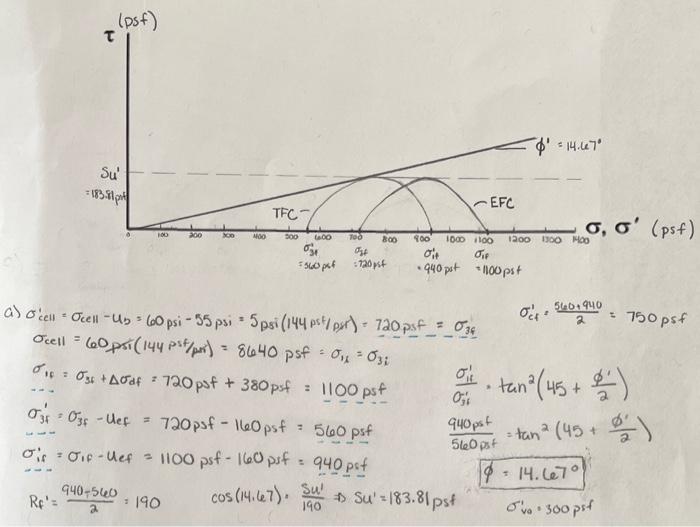 (psf)
τ
ϕ' = 14.67°
Su'
= 183.81 psf
TFC
EFC
0 100 200 300 400 500 600 700 800 900 1000 1100 1200 1300 1400
σ, σ' (psf)
σ'3f σ3f σ'1f σ1f
= 560 psf = 720 psf = 940 psf = 1100 psf
a) σ'cell = σcell - Ub = 60 psi - 55 psi = 5 psi (144 psf/psi) = 720 psf = σ3f
σ'cf = 560+940/2 = 750 psf
σcell = 60 psi (144 psf/psi) = 8640 psf = σ1i = σ3i
σ1f = σ3f + Δσdf = 720 psf + 380 psf = 1100 psf
σ'1f/σ'3f = tan²(45 + ϕ'/2)
σ'3f = σ3f - Uef = 720 psf - 160 psf = 560 psf
940 psf/560 psf = tan²(45 + ϕ'/2)
σ'1f = σ1f - Uef = 1100 psf - 160 psf = 940 psf
ϕ = 14.67°
Rf' = 940-560/2 = 190
cos(14.67) = Su'/190 ⇒ Su' = 183.81 psf
σ'vo = 300 psf